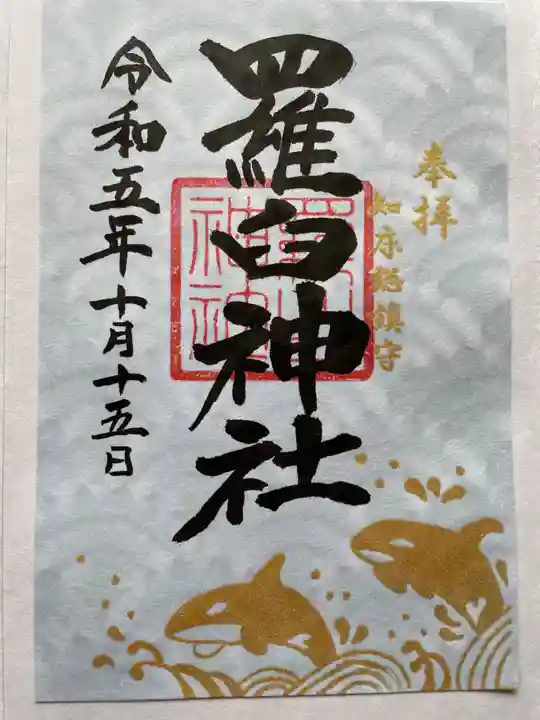 奉拝
知床総鎮守
羅臼神社
令和五年十月十五日